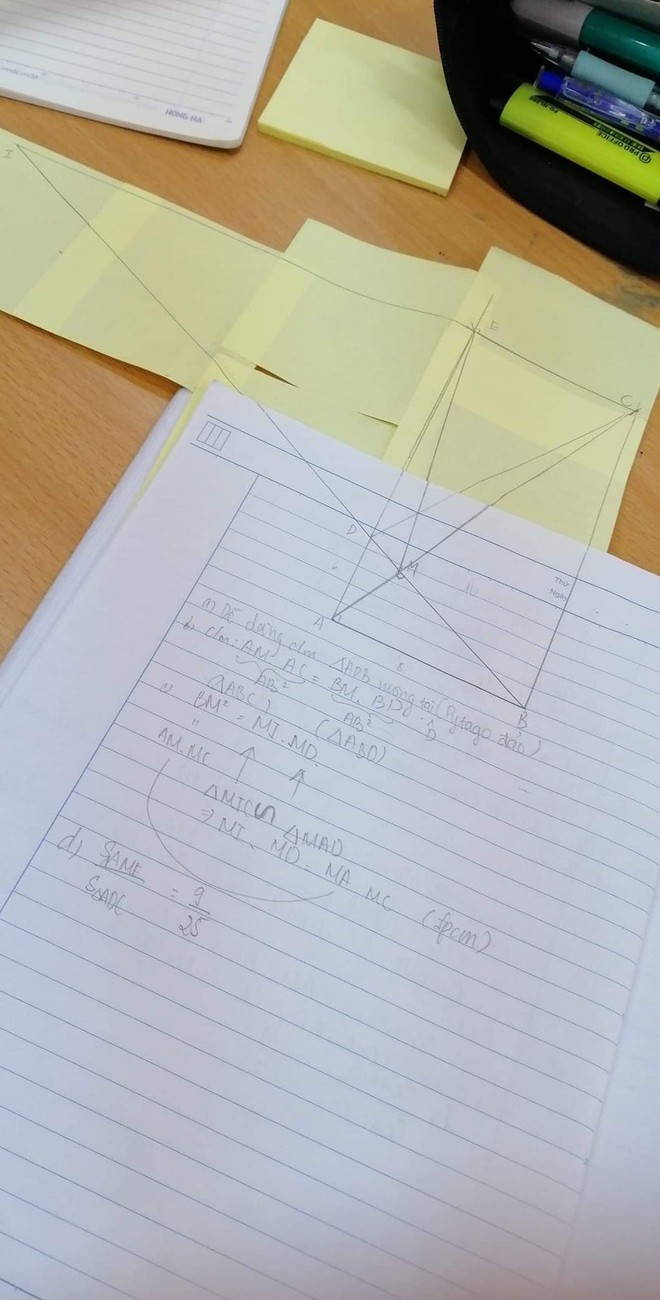 HONG HA
PRO OFFICE
I
E
C
D
M
6
10
Thứ
Ngày
A
8
B
a) Dễ dàng c/m ΔADB vuông tại (Pytago đảo)
b) C/m: AM. AC = BM. BD
AB² AB²
(ΔABC) (ΔABD)
c) BM² = MI. MD
"
AM.MC
ΔMIC ∽ ΔMAD
⇒ MI. MD = MA MC (đpcm)
d) SAME / SΔADC = 9/25